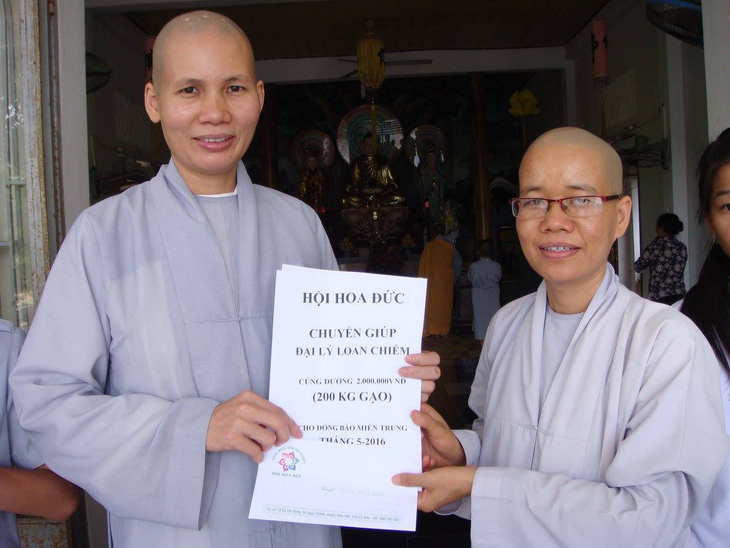 HỘI HOA ĐỨC
CHUYỂN GIÚP
ĐẠI LÝ LOAN CHIẾM
CÚNG DƯỜNG 2.000.000VNĐ
(200 KG GẠO)
CHO ĐỒNG BÀO MIỀN TRUNG
THÁNG 5-2016
HỘI HOA ĐỨC